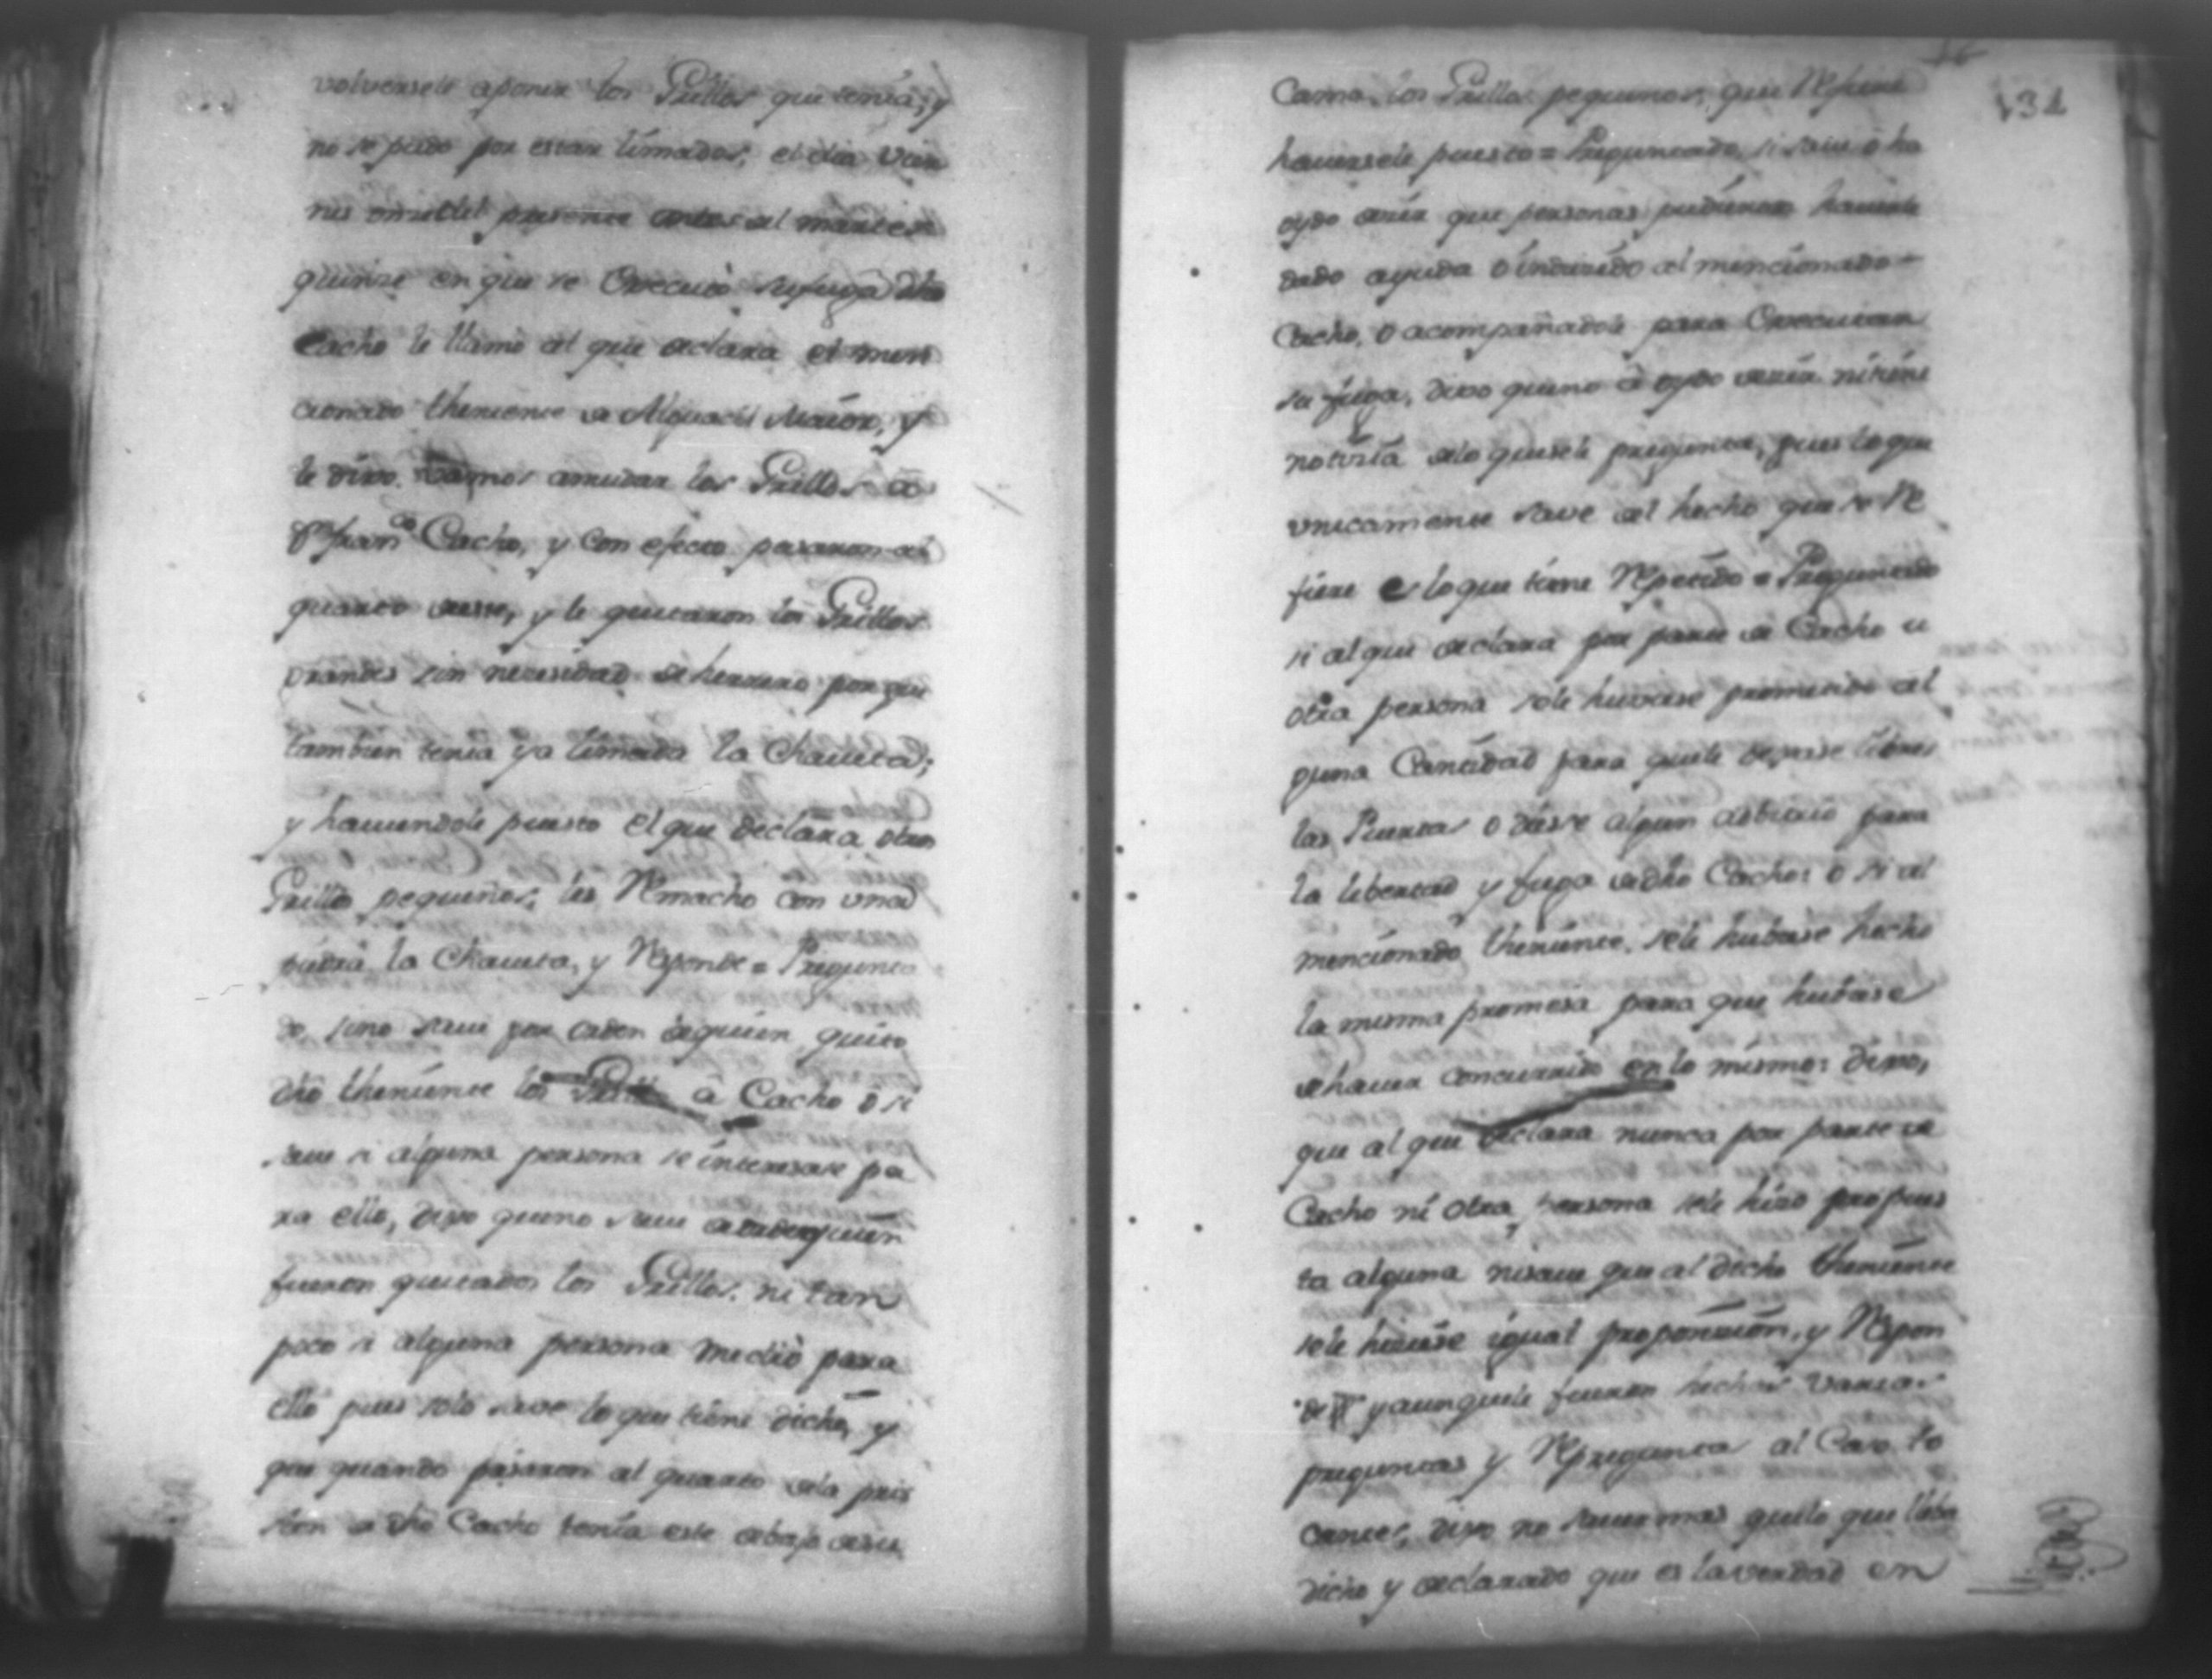 volversele aponer los Grillos que tenia, y
no se pudo por estar limados, el dia Vier
nes presente antes del martes
quinze en que se Executó su fuga dho
Cacho le llamó al que declara el men
cionado theniente de Alguacil Maior, y
le dixo. Vamos amudar los Grillos a
Dn franco Cacho, y con efecto pasaron al
quarto deste, y le quitaron los Grillos
grandes sin necesidad de herrero porque
tambien tenia ya limada la Chaveta;
y haviendole puesto el que declara otros
Grillos pequeños, les Remachó con una
piedra la Chaveta, y Responde = Pregunta
do, sino save por orden dequien quito
dho theniente los Grillos a Cacho o si
save si alguna persona se interesase pa
ra ello, dixo queno save de orden quien
fueron quitados los Grillos. ni tan
poco si alguna persona medió para
ello pues solo save lo que tiene dicho, y
que quando pasaron al quarto dela pris
sion de dho Cacho tenia este debajo desu
134
Cama los Grillos pequenos, que Refiere
haversele puesto = Preguntado, si save o ha
oydo decir que personas pudieron haverle
dado ayuda o inducido al mencionado
Cacho, o acompañadole para Executar
su fuga, dixo queno a oydo decir ni tiene
noticia delo quesele pregunta, pues lo que
unicamente save del hecho que se Re
fiere es lo que tiene Repetido = Preguntado
si al que declara por parte de Cacho u
otra persona sele huviese prometido al
guna Cantidad para quele dejase libres
las Puertas o diese algun adbitrio para
la libertad y fuga de dho Cacho: o si al
mencionado theniente. sele hubiese hecho
la misma promesa para que hubiese
de haver concurrido en lo mismo: dixo,
que al que declara nunca por parte de
Cacho ni otra persona sele hizo propues
ta alguna nisave que al dicho theniente
sele hiciese igual proposizion, y Respon
de y aunquele fueron hechas varias
preguntas y Repreguntas al Caso to
cantes, dixo no saver mas quelo que lleba
dicho y declarado que es la verdad en